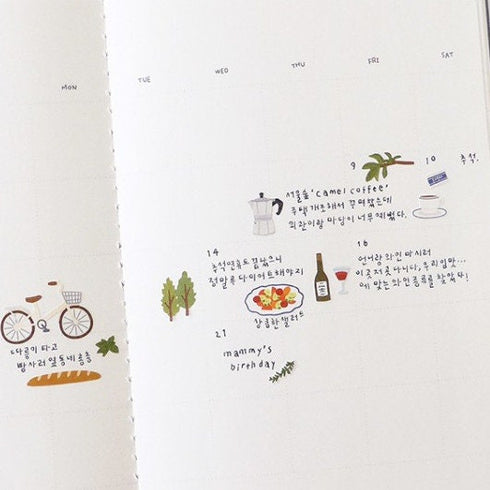 MON
TUE
WED
THU
FRI
SAT
9
10
추석.
서울숲 'camel coffee'
주택 개조해서 꾸며놨는데
외관이랑 마당이 너무 예뻤다.
14
추석연휴도 끝났으니
정말로 다이어트해야지
상큼하 샐러드
16
언어랑 와인 마시러
이곳저곳 다니다, 우리 입맛...
에 맞는 와인 종류를 찾았다!
21
mammy's
birthday
따릉이 타고
빵 사러 옆동네 총총